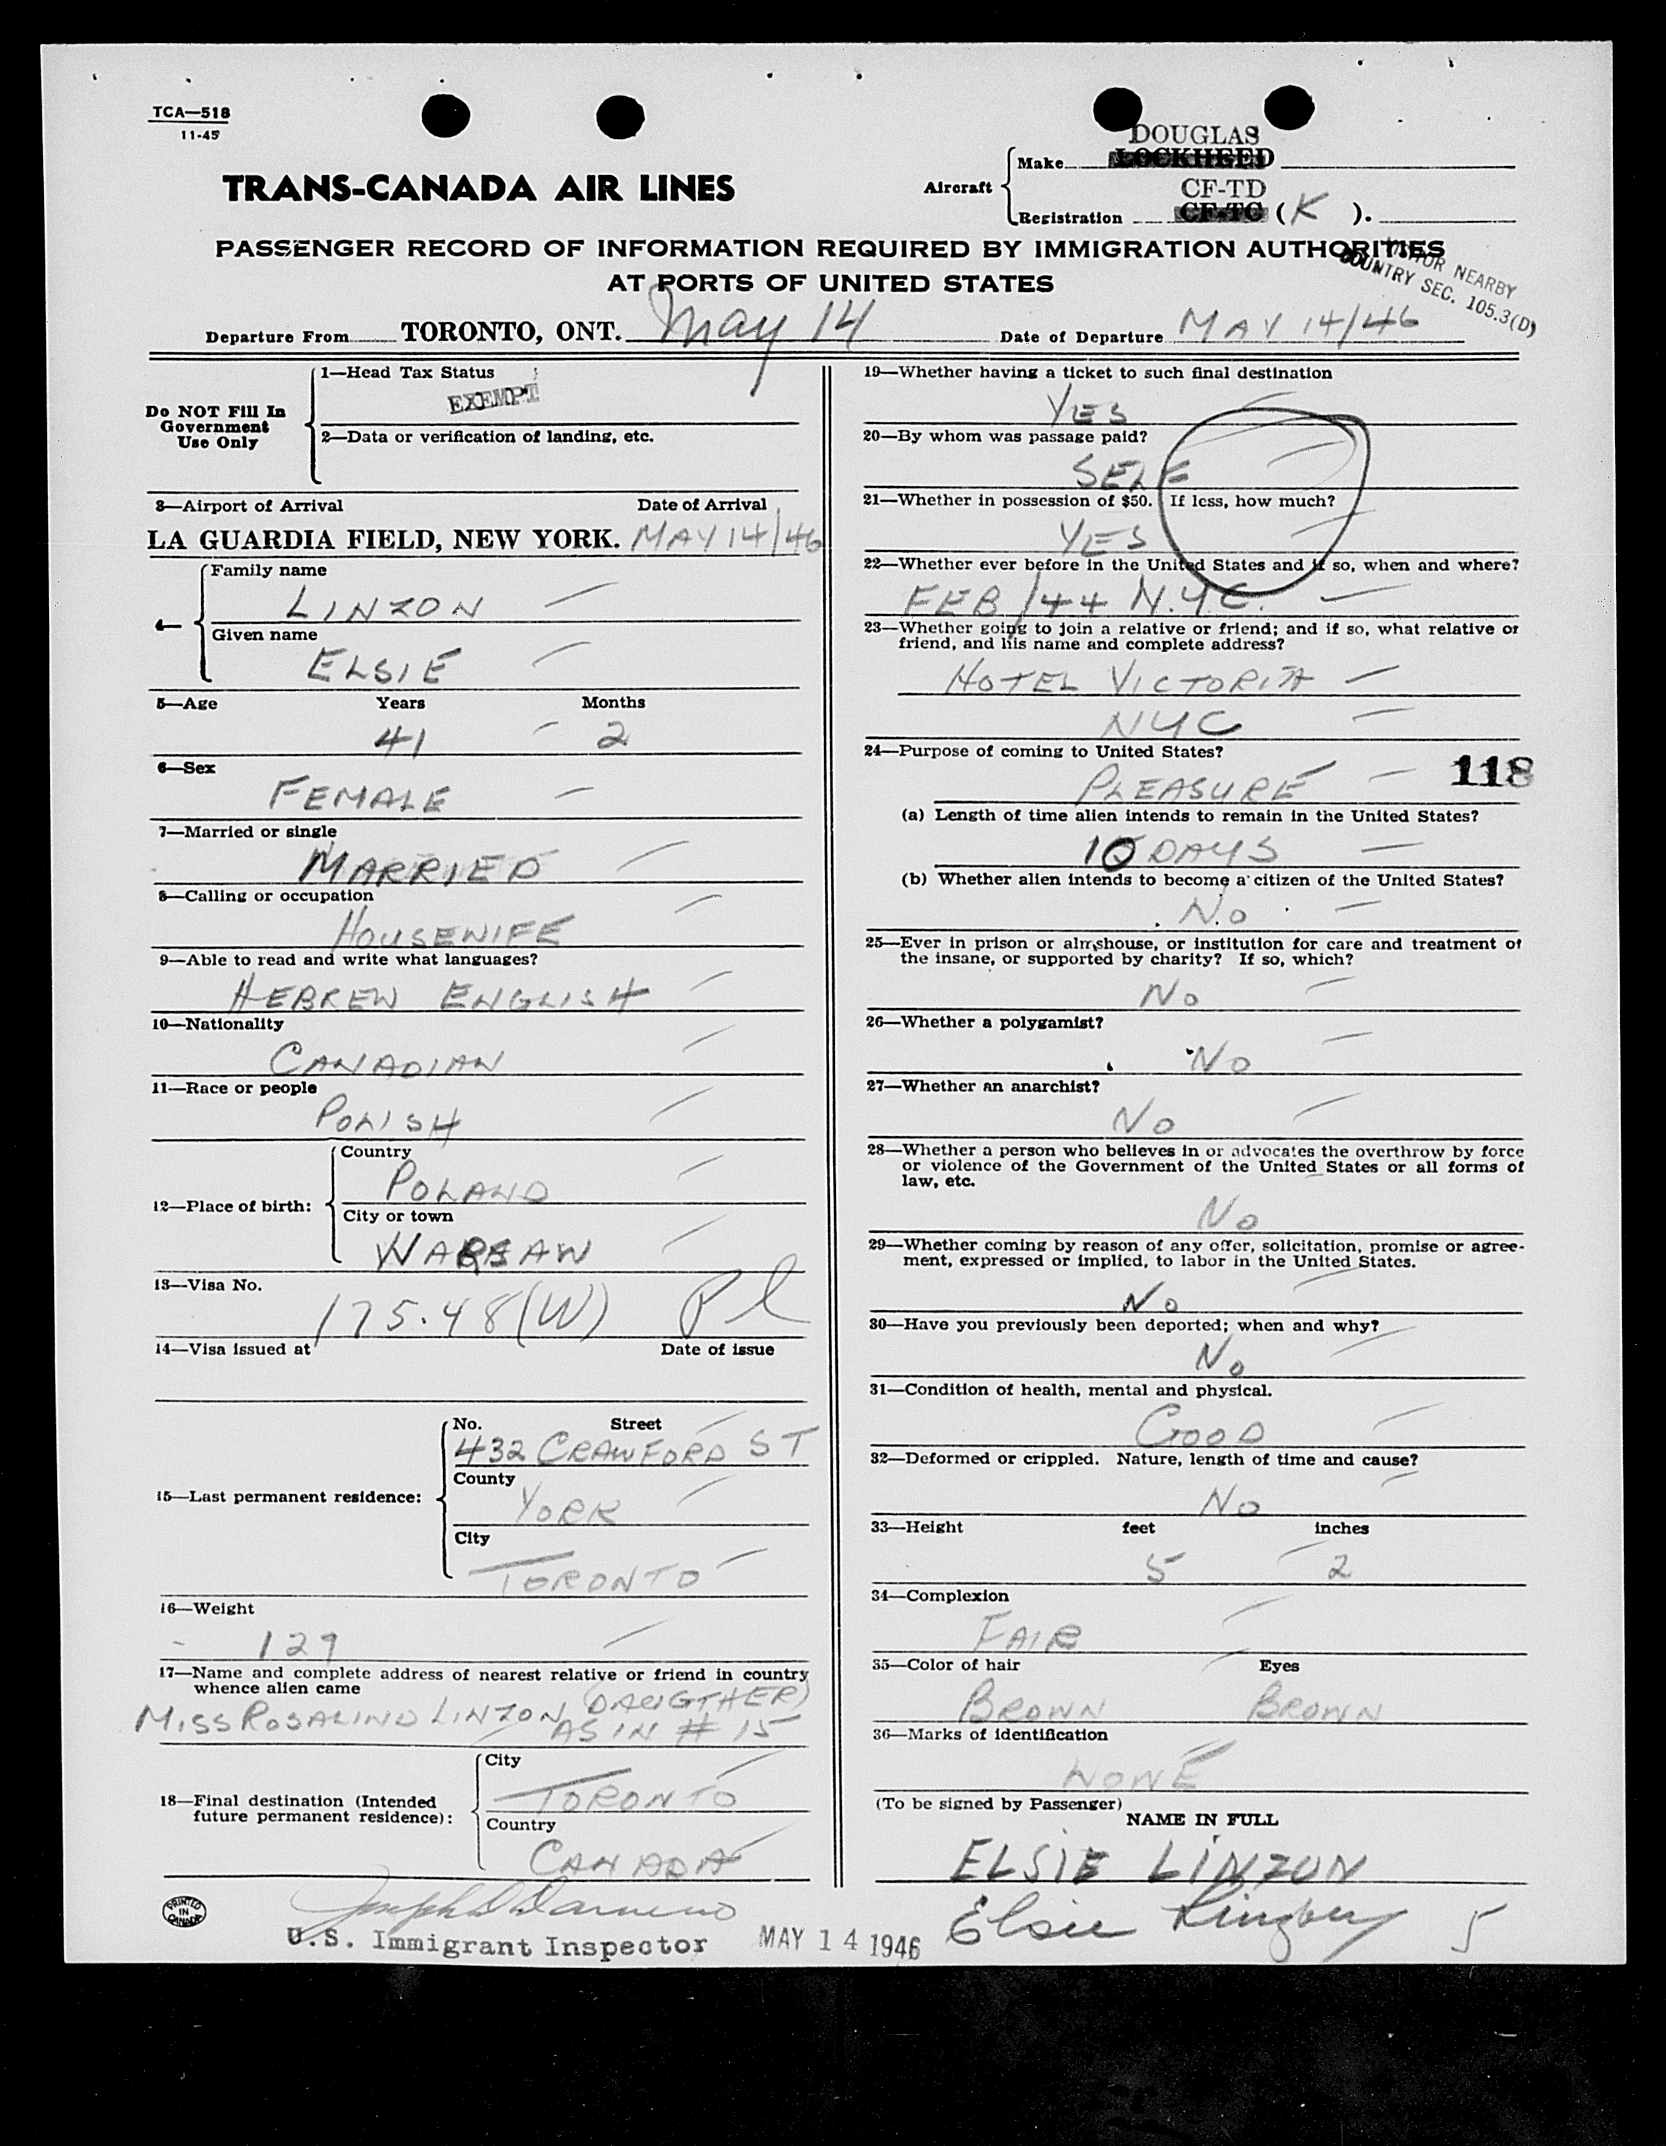 TCA—518
11-45
TRANS-CANADA AIR LINES
Aircraft
DOUGLAS
Make LOCKHEED
CF-TD
Registration CF-TC (K ).
PASSENGER RECORD OF INFORMATION REQUIRED BY IMMIGRATION AUTHORITIES
AT PORTS OF UNITED STATES
VISITOR NEARBY
COUNTRY SEC. 105.3(D)
Departure From TORONTO, ONT. May 14 Date of Departure MAY 14/46
Do NOT Fill In
Government
Use Only
1—Head Tax Status
EXEMPT
2—Data or verification of landing, etc.
3—Airport of Arrival Date of Arrival
LA GUARDIA FIELD, NEW YORK. MAY 14/46
4—
Family name
LINZON
Given name
ELSIE
5—Age Years Months
41 2
6—Sex
FEMALE
7—Married or single
MARRIED
8—Calling or occupation
HOUSEWIFE
9—Able to read and write what languages?
HEBREW ENGLISH
10—Nationality
CANADIAN
11—Race or people
POLISH
12—Place of birth:
Country
POLAND
City or town
WARSAW
13—Visa No.
175.48(W) Pl
14—Visa issued at Date of issue
15—Last permanent residence:
No. Street
432 CRAWFORD ST
County
YORK
City
TORONTO
16—Weight
129
17—Name and complete address of nearest relative or friend in country
whence alien came
MISS ROSALIND LINZON (DAUGTHER)
AS IN # 15
18—Final destination (Intended
future permanent residence):
City
TORONTO
Country
CANADA
PRINTED
IN
CANADA
U.S. Immigrant Inspector MAY 14 1946
19—Whether having a ticket to such final destination
YES
20—By whom was passage paid?
SELF
21—Whether in possession of $50. If less, how much?
YES
22—Whether ever before in the United States and if so, when and where?
FEB/44 N.Y.C.
23—Whether going to join a relative or friend; and if so, what relative or
friend, and his name and complete address?
HOTEL VICTORIA
NYC
24—Purpose of coming to United States?
PLEASURE
118
(a) Length of time alien intends to remain in the United States?
10 DAYS
(b) Whether alien intends to become a citizen of the United States?
No
25—Ever in prison or almshouse, or institution for care and treatment of
the insane, or supported by charity? If so, which?
No
26—Whether a polygamist?
No
27—Whether an anarchist?
No
28—Whether a person who believes in or advocates the overthrow by force
or violence of the Government of the United States or all forms of
law, etc.
No
29—Whether coming by reason of any offer, solicitation, promise or agree-
ment, expressed or implied, to labor in the United States.
No
30—Have you previously been deported; when and why?
No
31—Condition of health, mental and physical.
GOOD
32—Deformed or crippled. Nature, length of time and cause?
No
33—Height feet inches
5 2
34—Complexion
FAIR
35—Color of hair Eyes
BROWN BROWN
36—Marks of identification
NONE
(To be signed by Passenger)
NAME IN FULL
ELSIE LINZON
Elsie 5